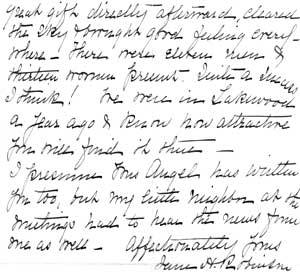 great gift directly afterward, cleared
the sky & brought good feeling every-
where - There were eleven men &
thirteen women present Quite a success
I think! We were in Lakewood
a year ago & know how attractive
you will find it there -
I presume Mrs Angel has written
you too, but my little neighbor at the
meetings had to hear the news from
me as well - Affectionately yours
Jane A. Robinson